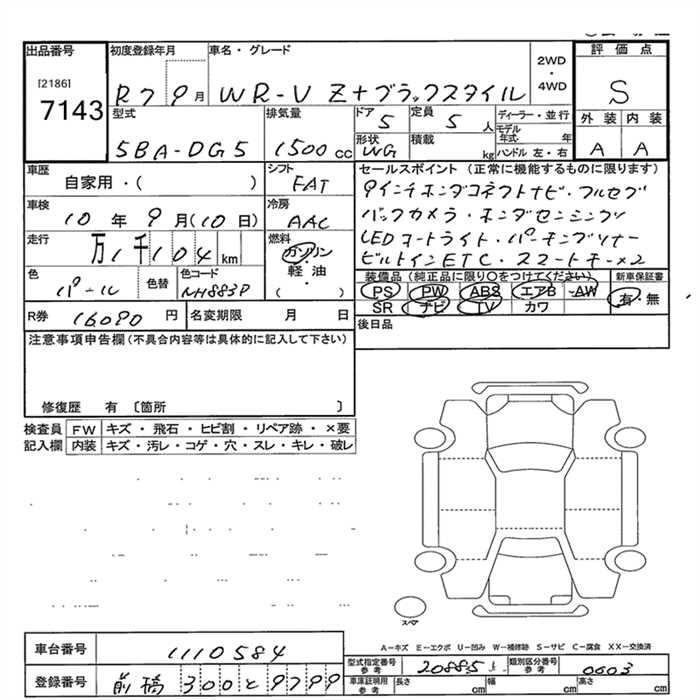 出品番号
[2186]
7143
初度登録年月
R7 9月
車名・グレード
WR-V Z+ブラックスタイル
2WD
・
4WD
評価点
S
外装 内装
A A
型式
5BA-DG5
排気量
1500cc
ドア
5
定員
5人
形状
WG
積載
kg
ディーラー・並行
モデル年式 年
ハンドル 左・右
車歴
自家用・( )
シフト
FAT
車検
10年9月(10日)
冷房
AAC
走行
万1千104km
燃料
ガソリン
・
軽油
・
( )
色
パール
色替
色コード
NH883P
セールスポイント(正常に機能するものに限ります)
9インチホンダコネクトナビ・フルセグ
バックカメラ・ホンダセンシング
LEDオートライト・パーキングソナー
ビルトインETC・スマートキー×2
装備品(純正品に限り○をつけてください)
PS PW ABS エアB AW
SR ナビ TV カワ
新車保証書
有・無
R券 16090円
名変期限 月 日
後日品
注意事項申告欄(不具合内容等は具体的に記入して下さい)
修復歴 有 〔箇所 〕
検査員 FW キズ・飛石・ヒビ割・リペア跡・×要
記入欄 内装 キズ・汚レ・コゲ・穴・スレ・キレ・破レ
スペア
A−キズ E−エクボ U−凹み W−補修跡 S−サビ C−腐食 XX−交換済
車台番号 1110584
登録番号 前橋300と9799
型式指定番号
参考
20885
類別区分番号
参考
0603
車庫証明用
参考
長さ cm 幅 cm 高さ cm